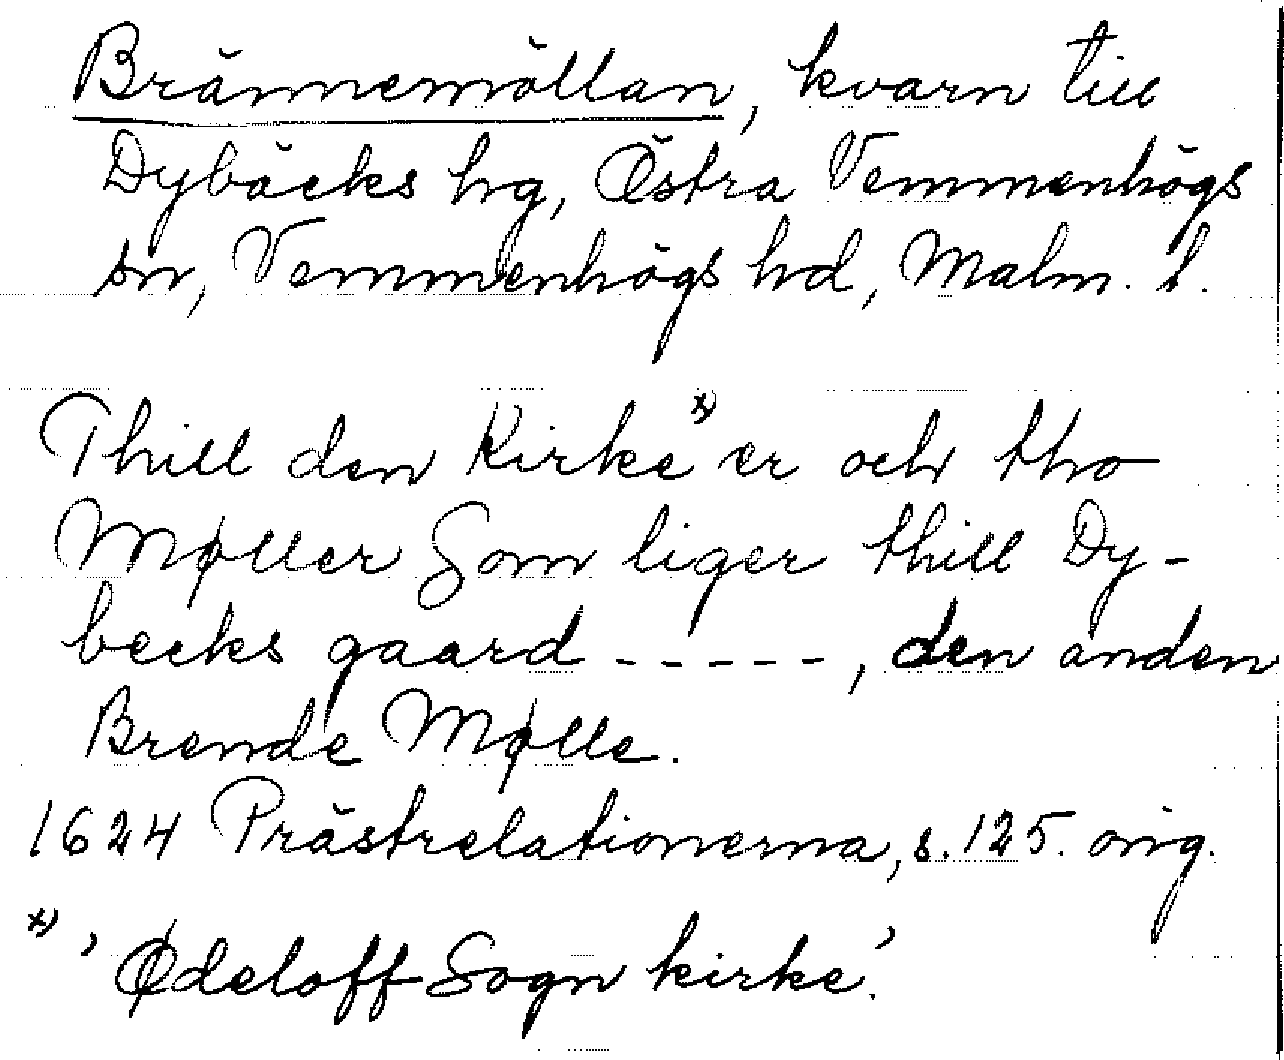 Brännemöllan, kvarn till
Dybäcks hg, Östra Vemmenhögs
sn, Vemmenhögs hd, Malm. l.
Thill den Kirke x) er och tho
Møller Som liger thill Dy-
becks gaard - - - - -, den anden
Brende Mølle.
1624 Prästrelationerna, s. 125. orig.
x) 'Ødeloff Sogn kirke'.